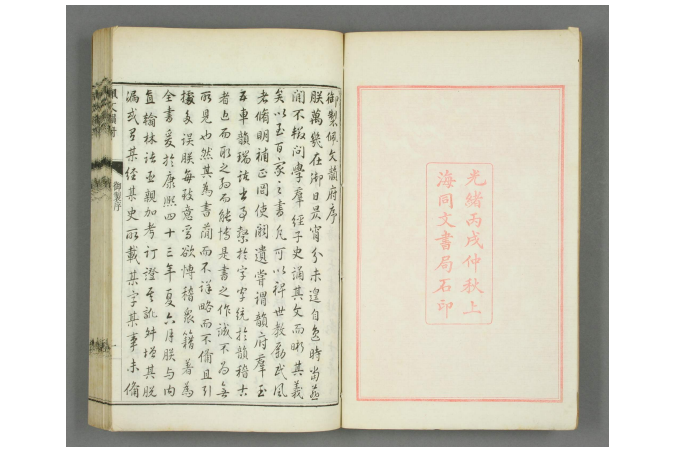 光緒丙戌仲秋上
海同文書局石印
御製佩文韻府序
朕萬幾在御日昃宵分未遑自逸時當燕
閒不輟問學羣經子史誦其文而晰其義
矣以至百家之書凡可以裨世教勵民風
者脩明補正罔使闕遺嘗謂韻府羣玉
五車韻瑞諸書事繫於字字統於韻稽古
者近而取之約而能博是書之作誠不為無
所見也然其為書簡而不詳略而不備且引
據多誤朕每致意焉欲博稽衆籍著為
全書爰於康熙四十三年夏六月朕與內
直翰林諸臣親加考訂證其訛舛增其脱
漏或有某經某史所載某字某事未備
御製序
一